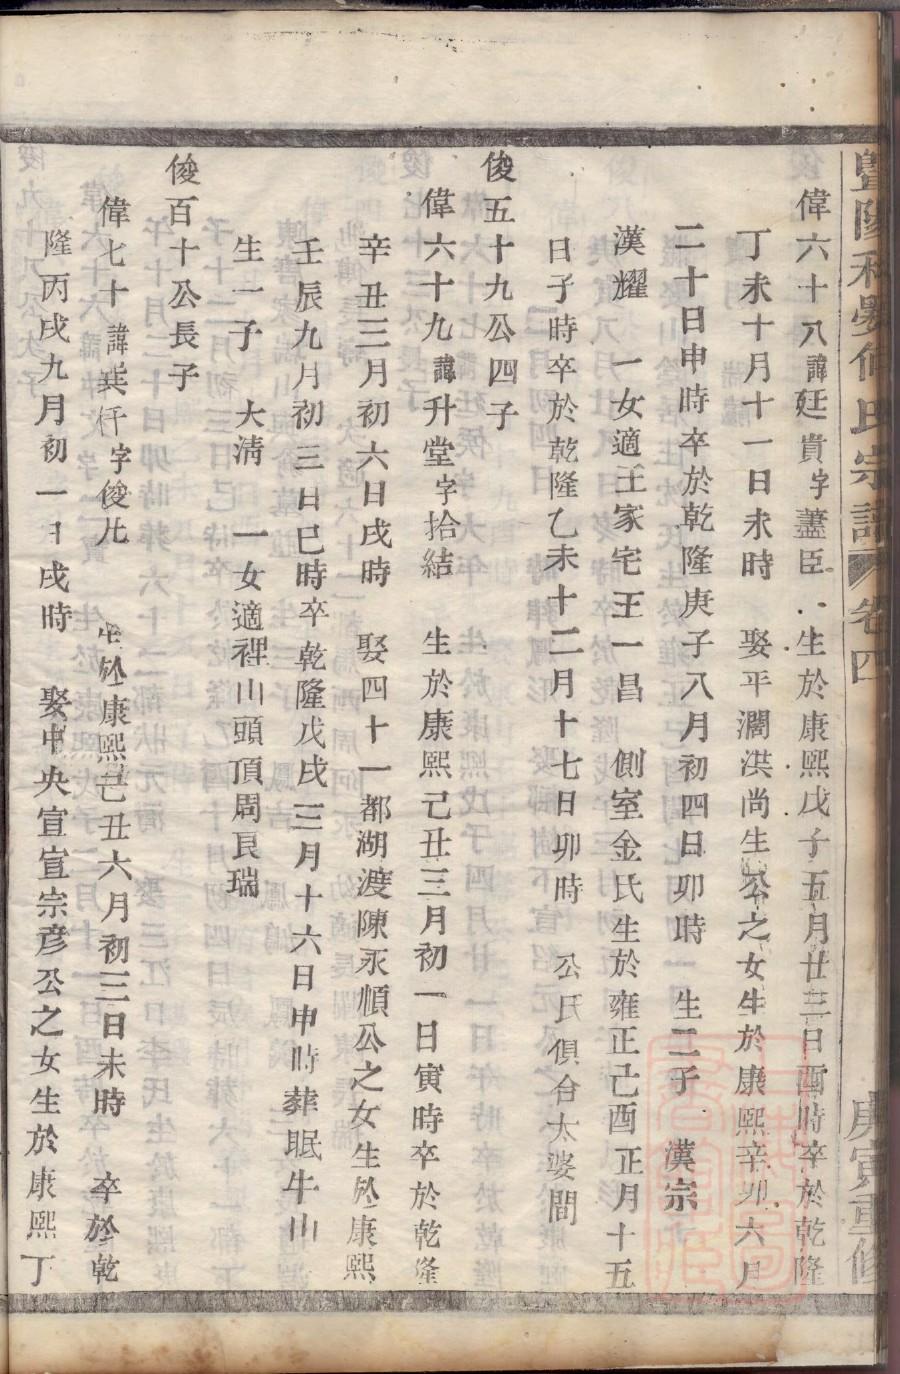 暨陽 何氏宗譜 卷四 庚寅重修
偉六十八諱廷貴字藎臣 生於康熙戊子五月廿三日酉時卒於乾隆
丁未十月十一日未時 娶平濶洪尚生公之女生於康熙辛卯六月
二十日申時卒於乾隆庚子八月初四日卯時 生二子 漢宗
漢耀 一女適王家宅王一昌 側室金氏生於雍正己酉正月十五
日子時卒於乾隆乙未十二月十七日卯時 公氏俱合太婆間
俊五十九公四子
偉六十九諱升堂字拾結 生於康熙己丑三月初一日寅時卒於乾隆
辛丑三月初六日戌時 娶四十一都湖渡陳永順公之女生於康熙
壬辰九月初三日巳時卒乾隆戊戌三月十六日申時葬眠牛山
生一子 大清 一女適裡山頭頂周艮瑞
俊百十公長子
偉七十諱巽杆字俊 生於康熙己丑六月初三日未時 卒於乾
隆丙戌九月初一日戌時 娶中央宣宣宗彦公之女生於康熙丁